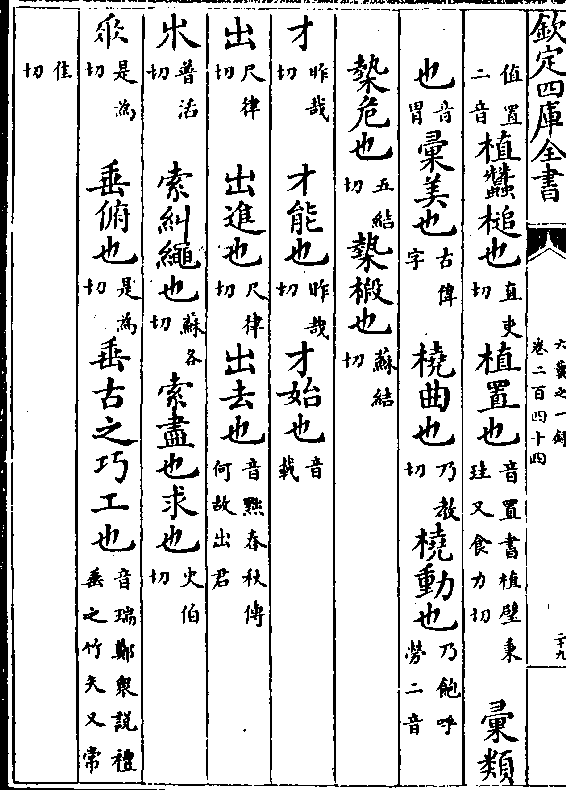 欽定四庫全書
六藝之一錄
卷二百四十四
二十九
值置
二音植蠶槌也直吏
切植置也音置書植璧秉
珪又食力切彙類
也音
胃彙美也古偉
字橈曲也乃教
切橈動也乃飽呼
勞二音
槷危也五結
切槷椴也蘇結
切
才昨哉
切才能也昨哉
切才始也音
載
出尺律
切出進也尺律
切出去也音黜春秋傳
何故出君
普活
切索糾繩也蘇各
切索盡也求也史伯
切
是為
切垂俯也是為
切垂古之巧工也音瑞鄭衆說禮
垂之竹矢又常
佳
切